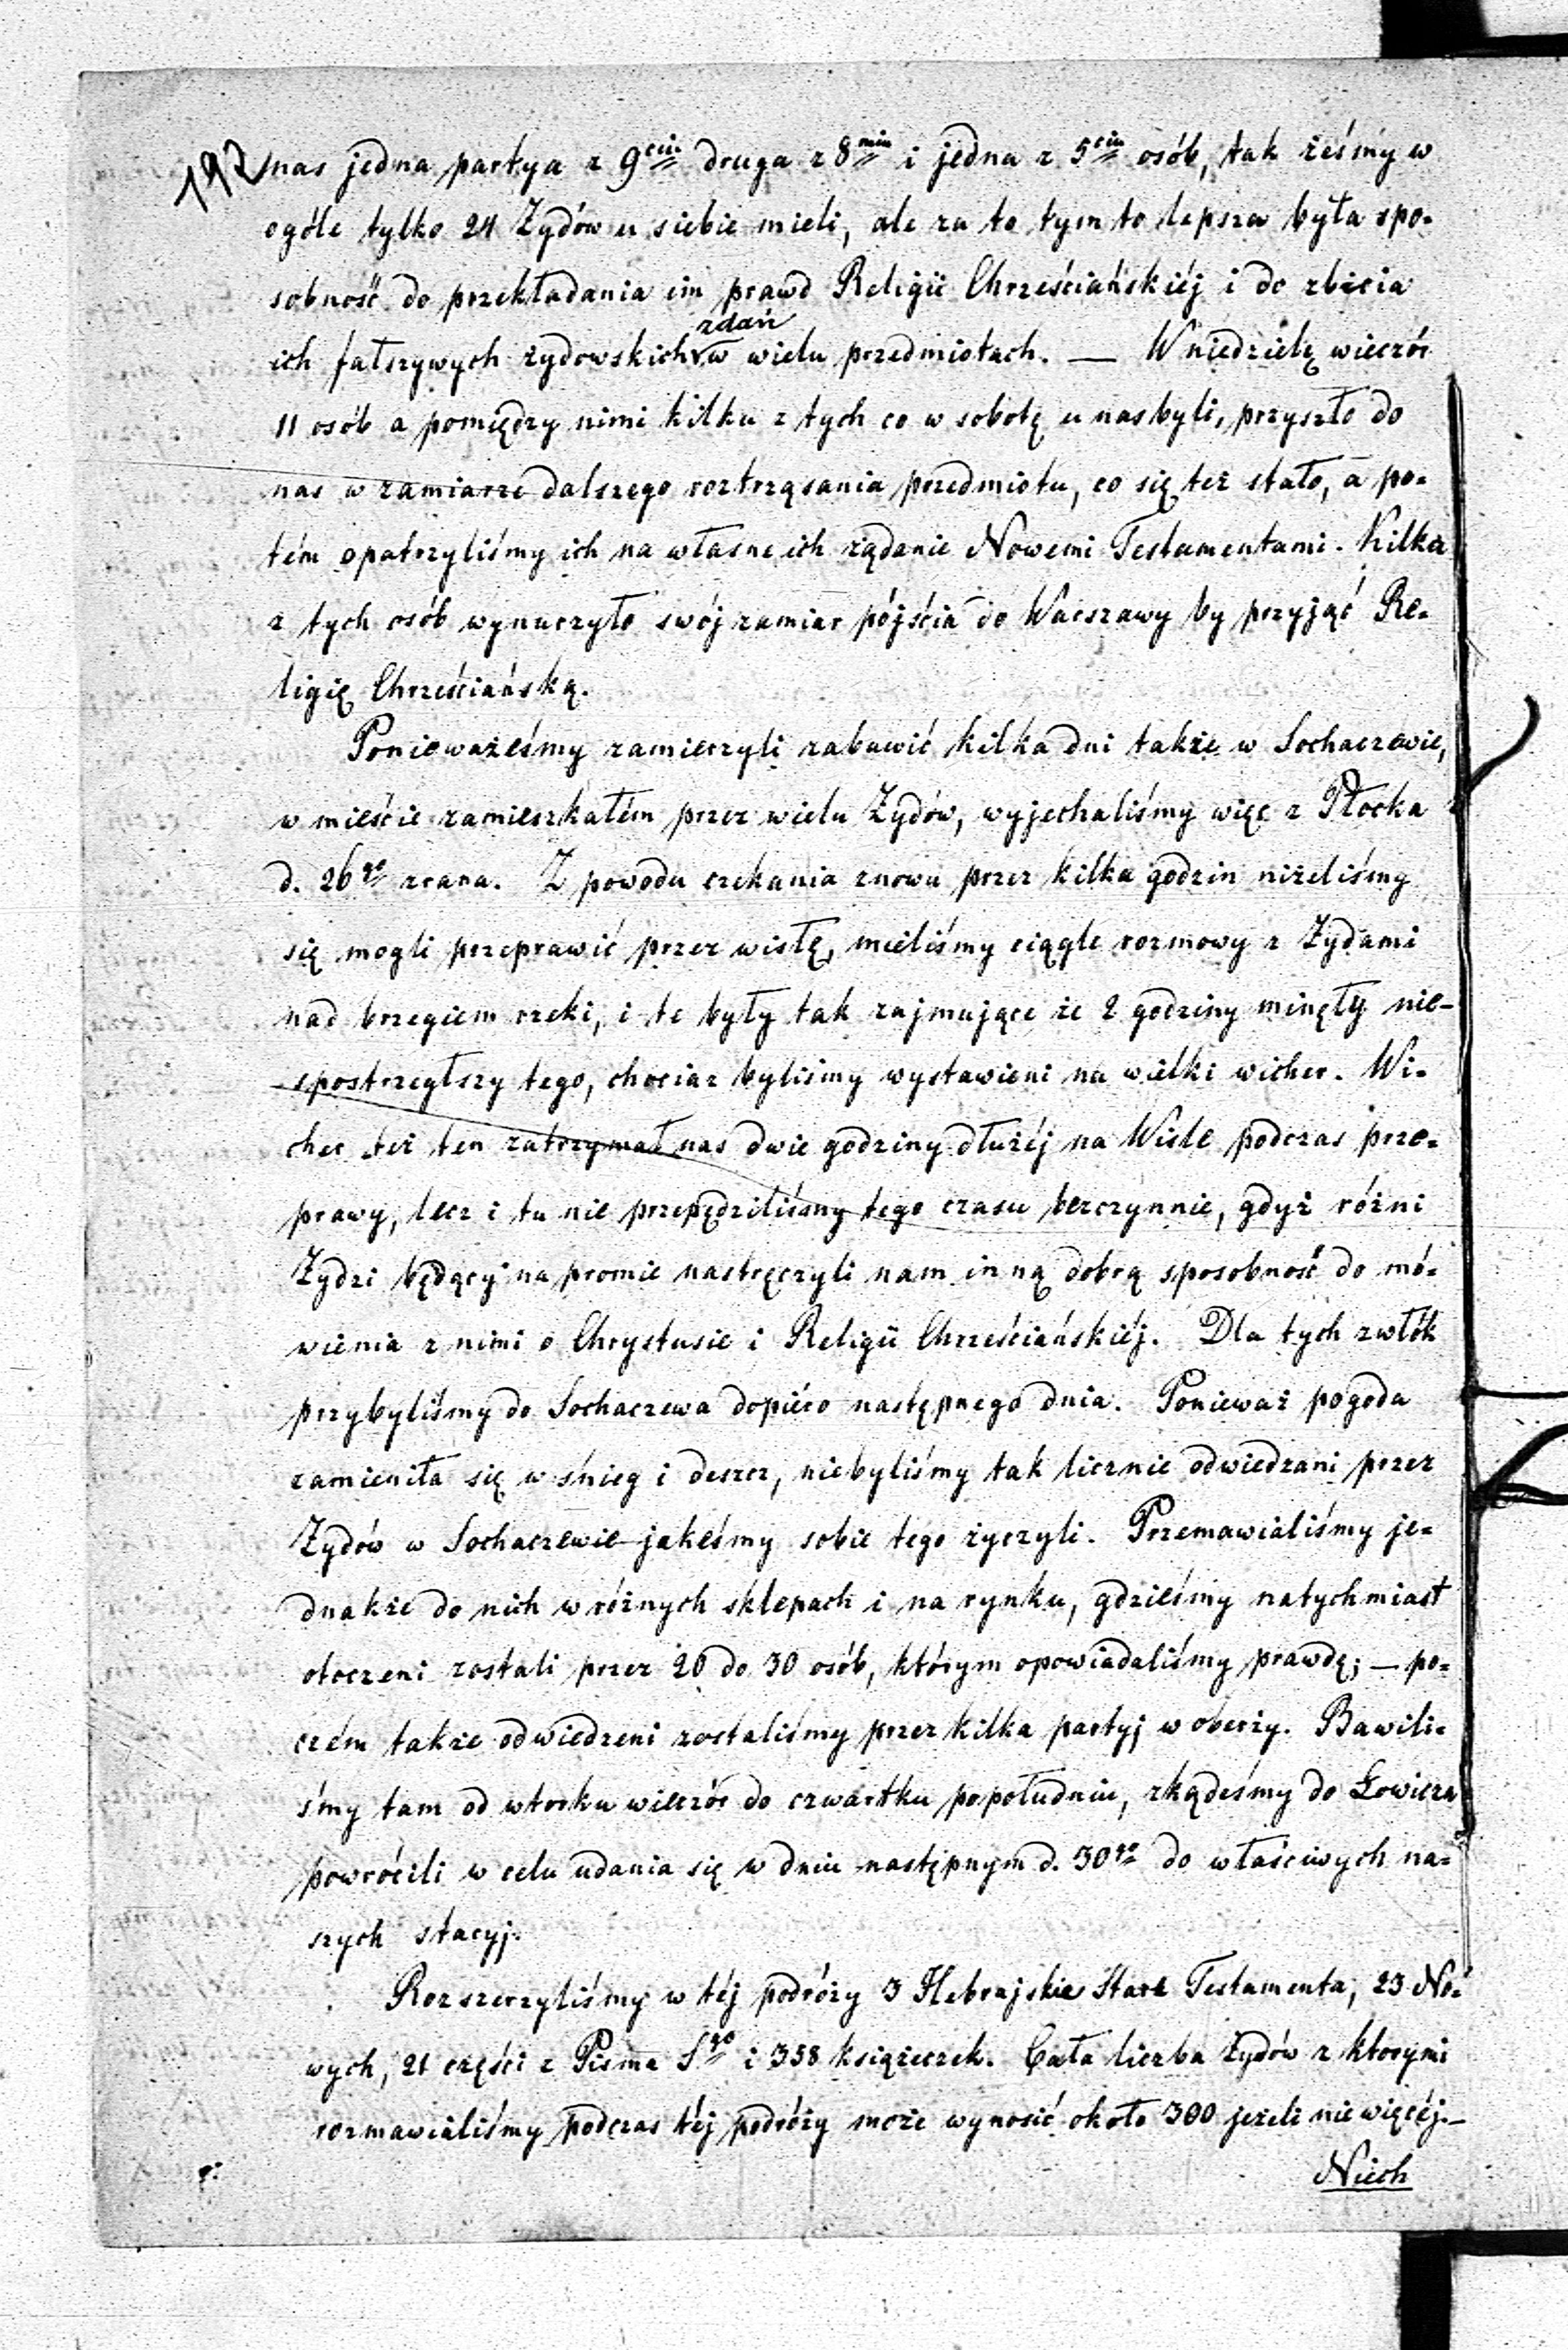 192
nas jedna partya z 9ciu druga z 8miu i jedna z 5ciu osób, tak żeśmy w
ogóle tylko 24 Żydów u siebie mieli, ale za to tym to lepsza była spo-
sobność do przekładania im prawd Religii Chrześciańskiéj i do zbicia
zdań
ich fałszywych żydowskich w wielu przedmiotach. — W niedzielę wieczór
11 osób a pomiędzy nimi kilku z tych co w sobotę u nas byli, przyszło do
nas w zamiarze dalszego roztrząsania przedmiotu, co się też stało, a po-
tém opatrzyliśmy ich na własne ich żądanie Nowemi Testamentami. Kilka
z tych osób wynurzyło swój zamiar pójścia do Warszawy by przyjąć Re-
ligię Chrześciańską.
Ponieważeśmy zamierzyli zabawić kilka dni także w Sochaczewie,
w mieście zamieszkałém przez wielu Żydów, wyjechaliśmy więc z Płocka
d. 26go zrana. Z powodu czekania znowu przez kilka godzin niżeliśmy
się mogli przeprawić przez wisłę, mieliśmy ciągle rozmowy z Żydami
nad brzegiem rzeki, i te były tak zajmujące że 2 godziny minęły nie-
spostrzegłszy tego, chociaż byliśmy wystawieni na wielki wicher. Wi-
cher też ten zatrzymał nas dwie godziny dłużéj na Wiśle podczas prze-
prawy, lecz i tu nie przepędziliśmy tego czasu bezczynnie, gdyż różni
Żydzi będący na promie nastręczyli nam inną dobrą sposobność do mó-
wienia z nimi o Chrystusie i Religii Chrześciańskiéj. Dla tych zwłók
przybyliśmy do Sochaczewa dopiéro następnego dnia. Ponieważ pogoda
zamieniła się w śnieg i deszcz, niebyliśmy tak licznie odwiedzani przez
Żydów w Sochaczewie jakeśmy sobie tego życzyli. Przemawialiśmy je-
dnakże do nich w różnych sklepach i na rynku, gdzieśmy natychmiast
otoczeni zostali przez 20 do 30 osób, którym opowiadaliśmy prawdę; — po-
czém także odwiedzeni zostaliśmy przez kilka partyj w oberży. Bawili-
śmy tam od wtorku wieczór do czwartku popołudniu, zkądeśmy do Łowicza
powrócili w celu udania się w dniu następnym d. 30go do właściwych na-
szych stacyj.
Rozszerzyliśmy w téj podróży 3 Hebrajskie Stare Testamenta, 23 No-
wych, 21 części z Pisma Sgo i 358 książeczek. Cała liczba Żydów z którymi
rozmawialiśmy podczas téj podróży może wynosić około 300 jeżeli nie więcéj.—
Niech